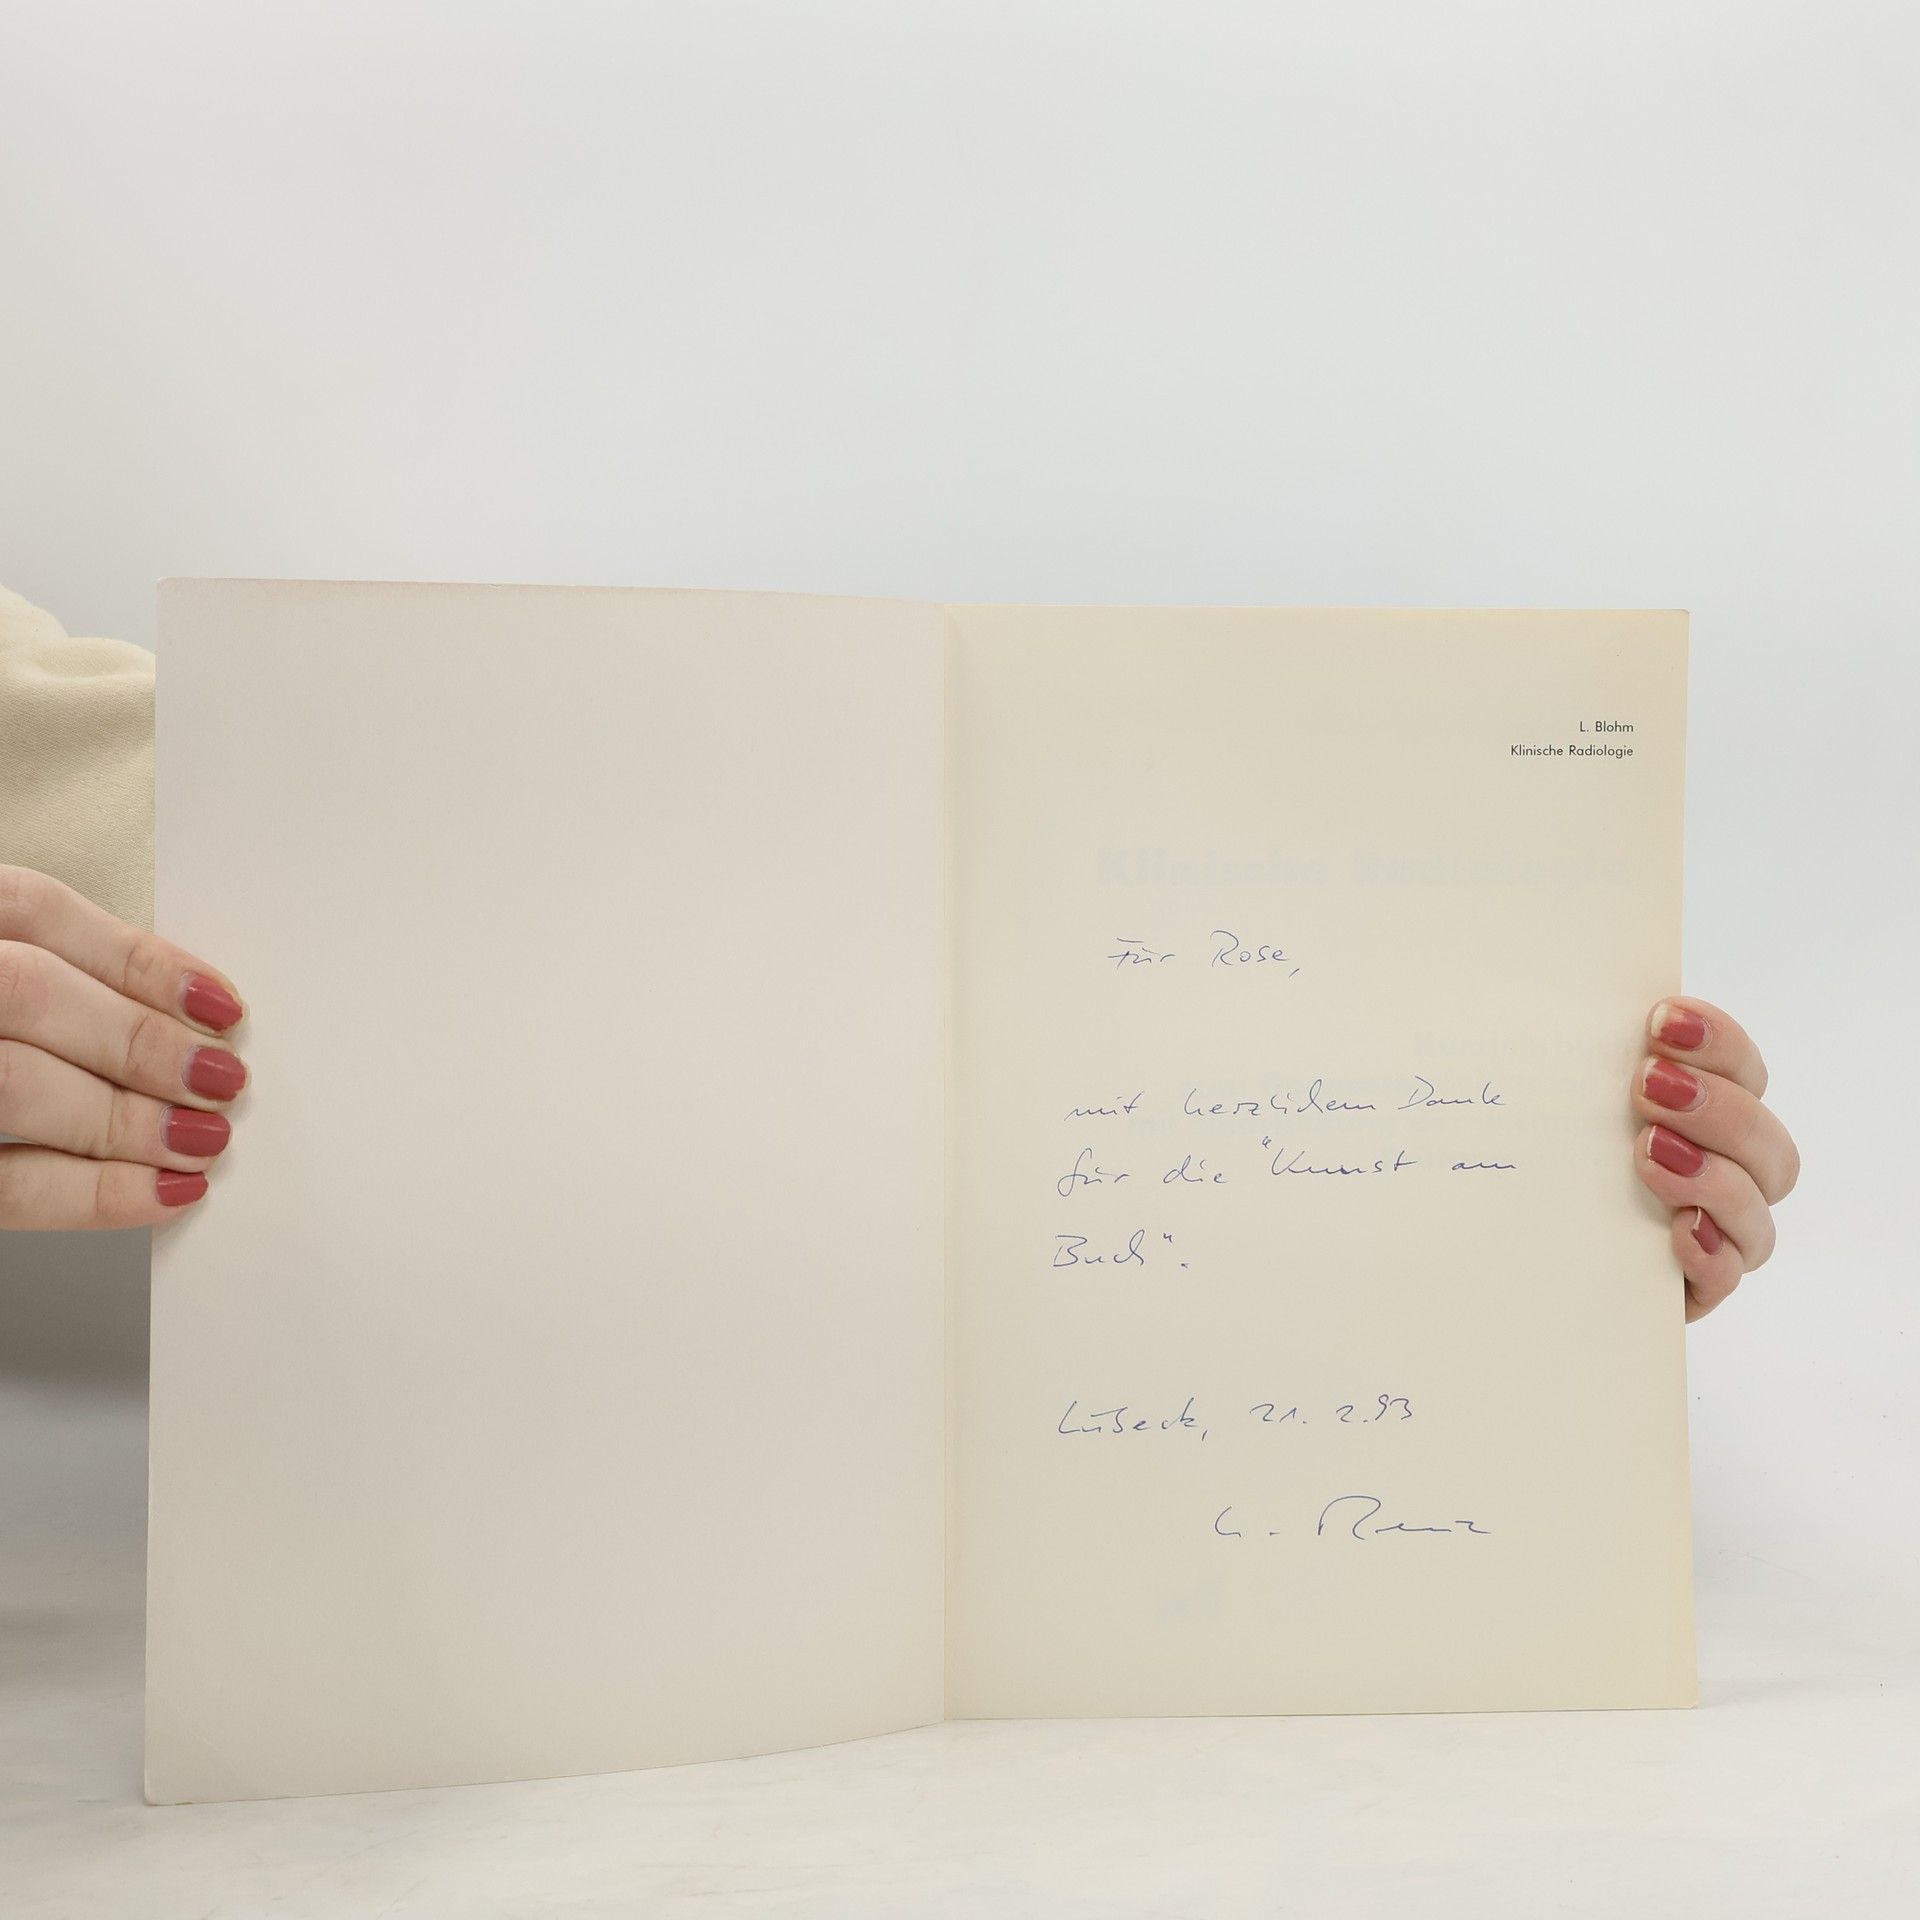 L. Blohm
Klinische Radiologie
Klinische Radiologie
Für Rose,
mit herzlichem Dank
für die "Kunst am
Buch".
Lübeck, 21. 2.93
Renz